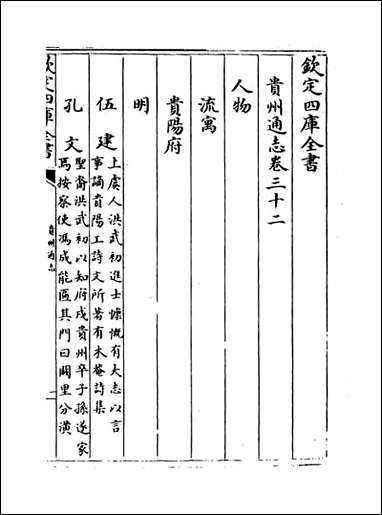 欽定四庫全書
貴州通志卷三十二
人物
流寓
貴陽府
明
伍建
上虞人洪武初進士慷慨有大志以言
事謫貴陽工詩文所著有木菴詩集
孔文
聖裔洪武初以知府戍貴州卒子孫遂家
焉按察使馮成能匾其門曰闕里分潢
欽定四庫全書
貴州通志